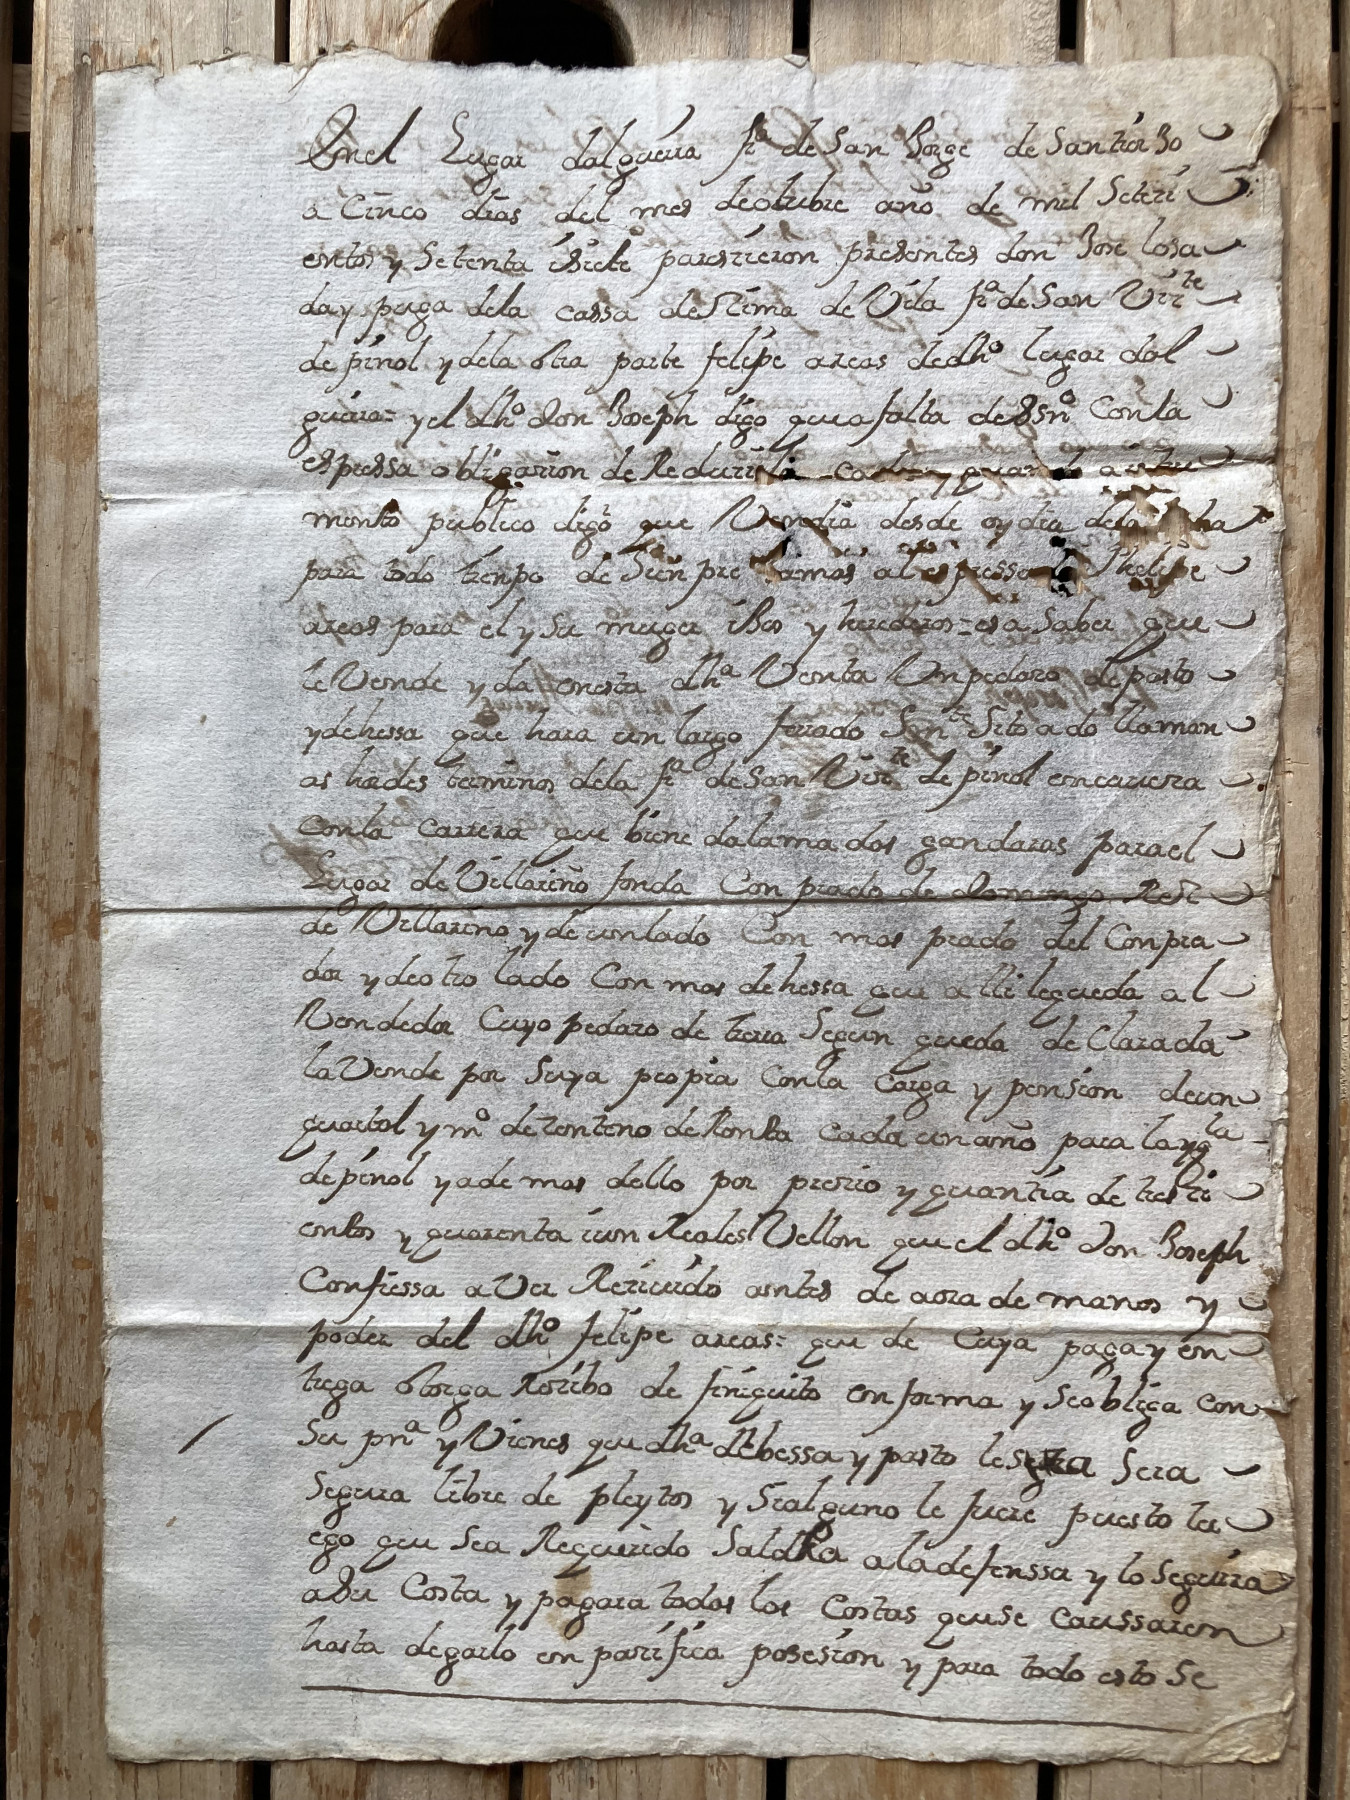 Enel Lugar dalguera fra de San Jorge de Santior Jo
a Cinco dias del mes deotubre año de mil Seteci
entos y Setenta isiete parecieron presentes don Jose losa
da y puga dela cassa de Cima de Vila fra de San Victe
de pinol y dela otra parte felipe areas dedho lugar dal
guera= y el dho don Joseph digo que a falta de Essno Conla
espressa obligacion de Reducirla cada y quando a istru
mento publico digo que Vendia desde oy dia dela
para todo tienpo de Sienpre Jamas al espressado Phelipe
areas para el y Su muger ijos y herederos= es a Saber que
le Vende y da enesta dha Venta Un pedazo de pasto
y dehessa que hara un largo ferrado Senra Sito a do llaman
as hades terminos dela fra de San Victe de pinol encavera
Conla carrera que biene dalama dos gandaras para el
Lugar de Villarino fonda Con prado de Domingo
de Villarino y de un lado Con mas prado del Conpra
dor y de otro lado Con mas dehessa que alli lequeda al
Vendedor Cuyo pedazo de terra Segun queda de Clarada
la Vende por Suya propia Conla Carga y pension deun
quartal y mo de zenteno de Renta cada un año para la ygla
de pinol y ade mas dello por precio y quantia de tresci
entos y quarenta iun Reales Vellon que el dho don Joseph
Confiessa a Ver Recivido antes de aora de manos y
poder del dho felipe areas= que de Cuya paga y en
trega otorga Recibo de finiquito en forma y Seobliga con
Su prna y Vienes que dha dehessa y pasto le Sera
Segura libre de pleytos y Sialguno le fuere puesto lu
ego que Sea Requerido Saldra a ladefenssa y lo Seguira
a Su Costa y pagara todos los Costas que se Caussaren
hasta degarlo en pacifica posesion y para todo esto Se